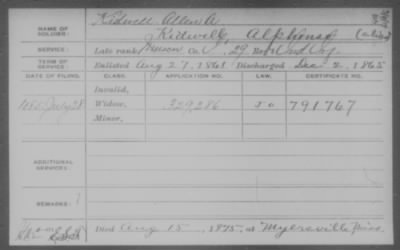 NAME OF SOLDIER: Kidwell, Allen A.
Kidwell, Alphonso (alias)
SERVICE: Late rank, Co. , 29 Reg't Ind Inf.
TERM OF SERVICE: Enlisted Aug 27, 1861 Discharged Dec. 2, 1865
DATE OF FILING. CLASS. APPLICATION NO. LAW. CERTIFICATE NO.
Invalid,
July 28 Widow, 329,286 791767
Minor,
ADDITIONAL SERVICES:
REMARKS:
Died Aug 15, 1875, at Myersville, Miss.